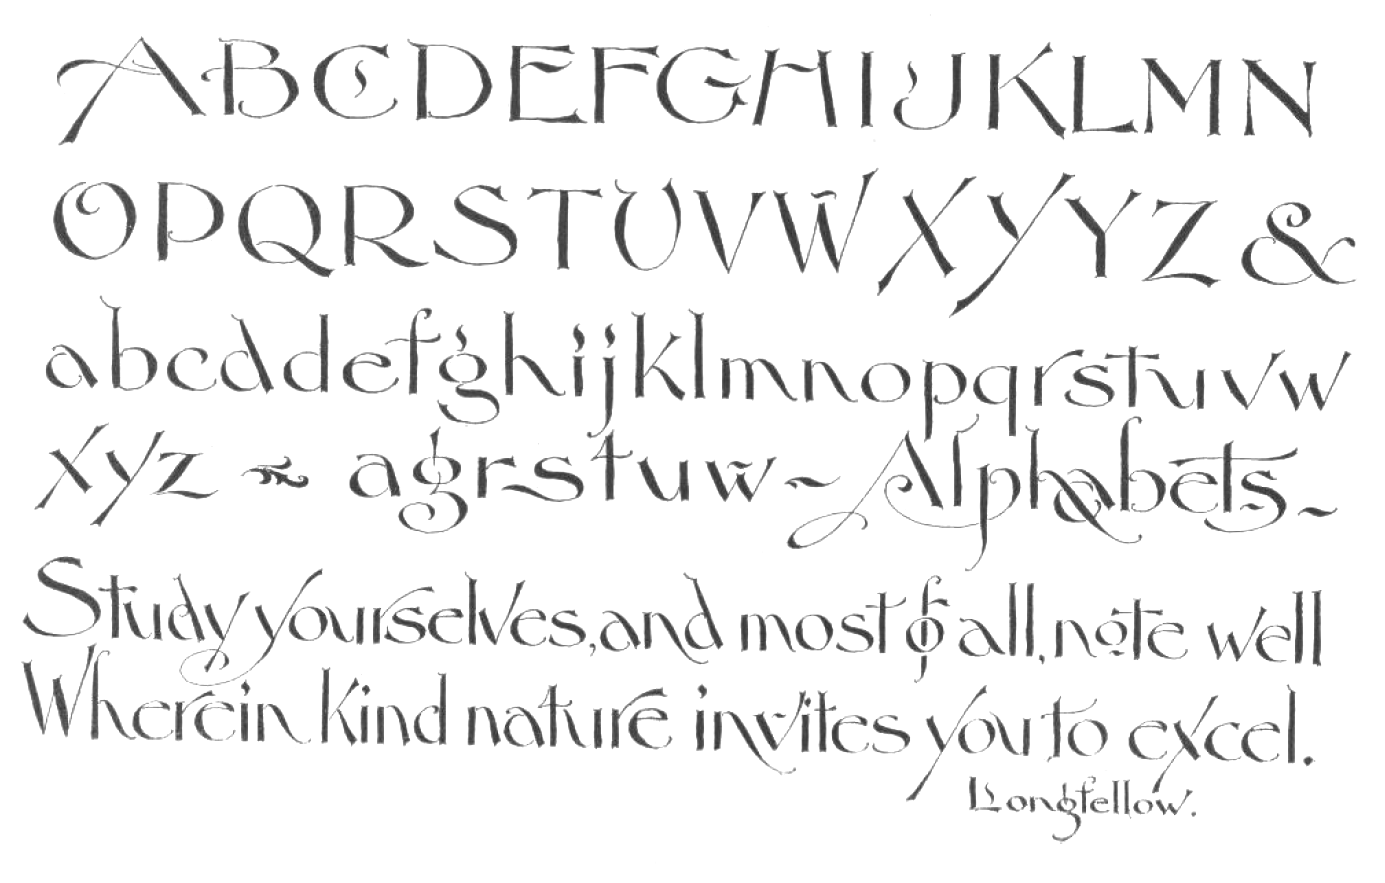 ABCDEFGHIJKLMN
OPQRSTUVWXYYZ &
abcddefghijklmnopqrstuvw
xyz ~ agrstuw ~ Alphabets ~
Study yourselves, and most of all, note well
Wherein kind nature invites you to excel.
Longfellow.